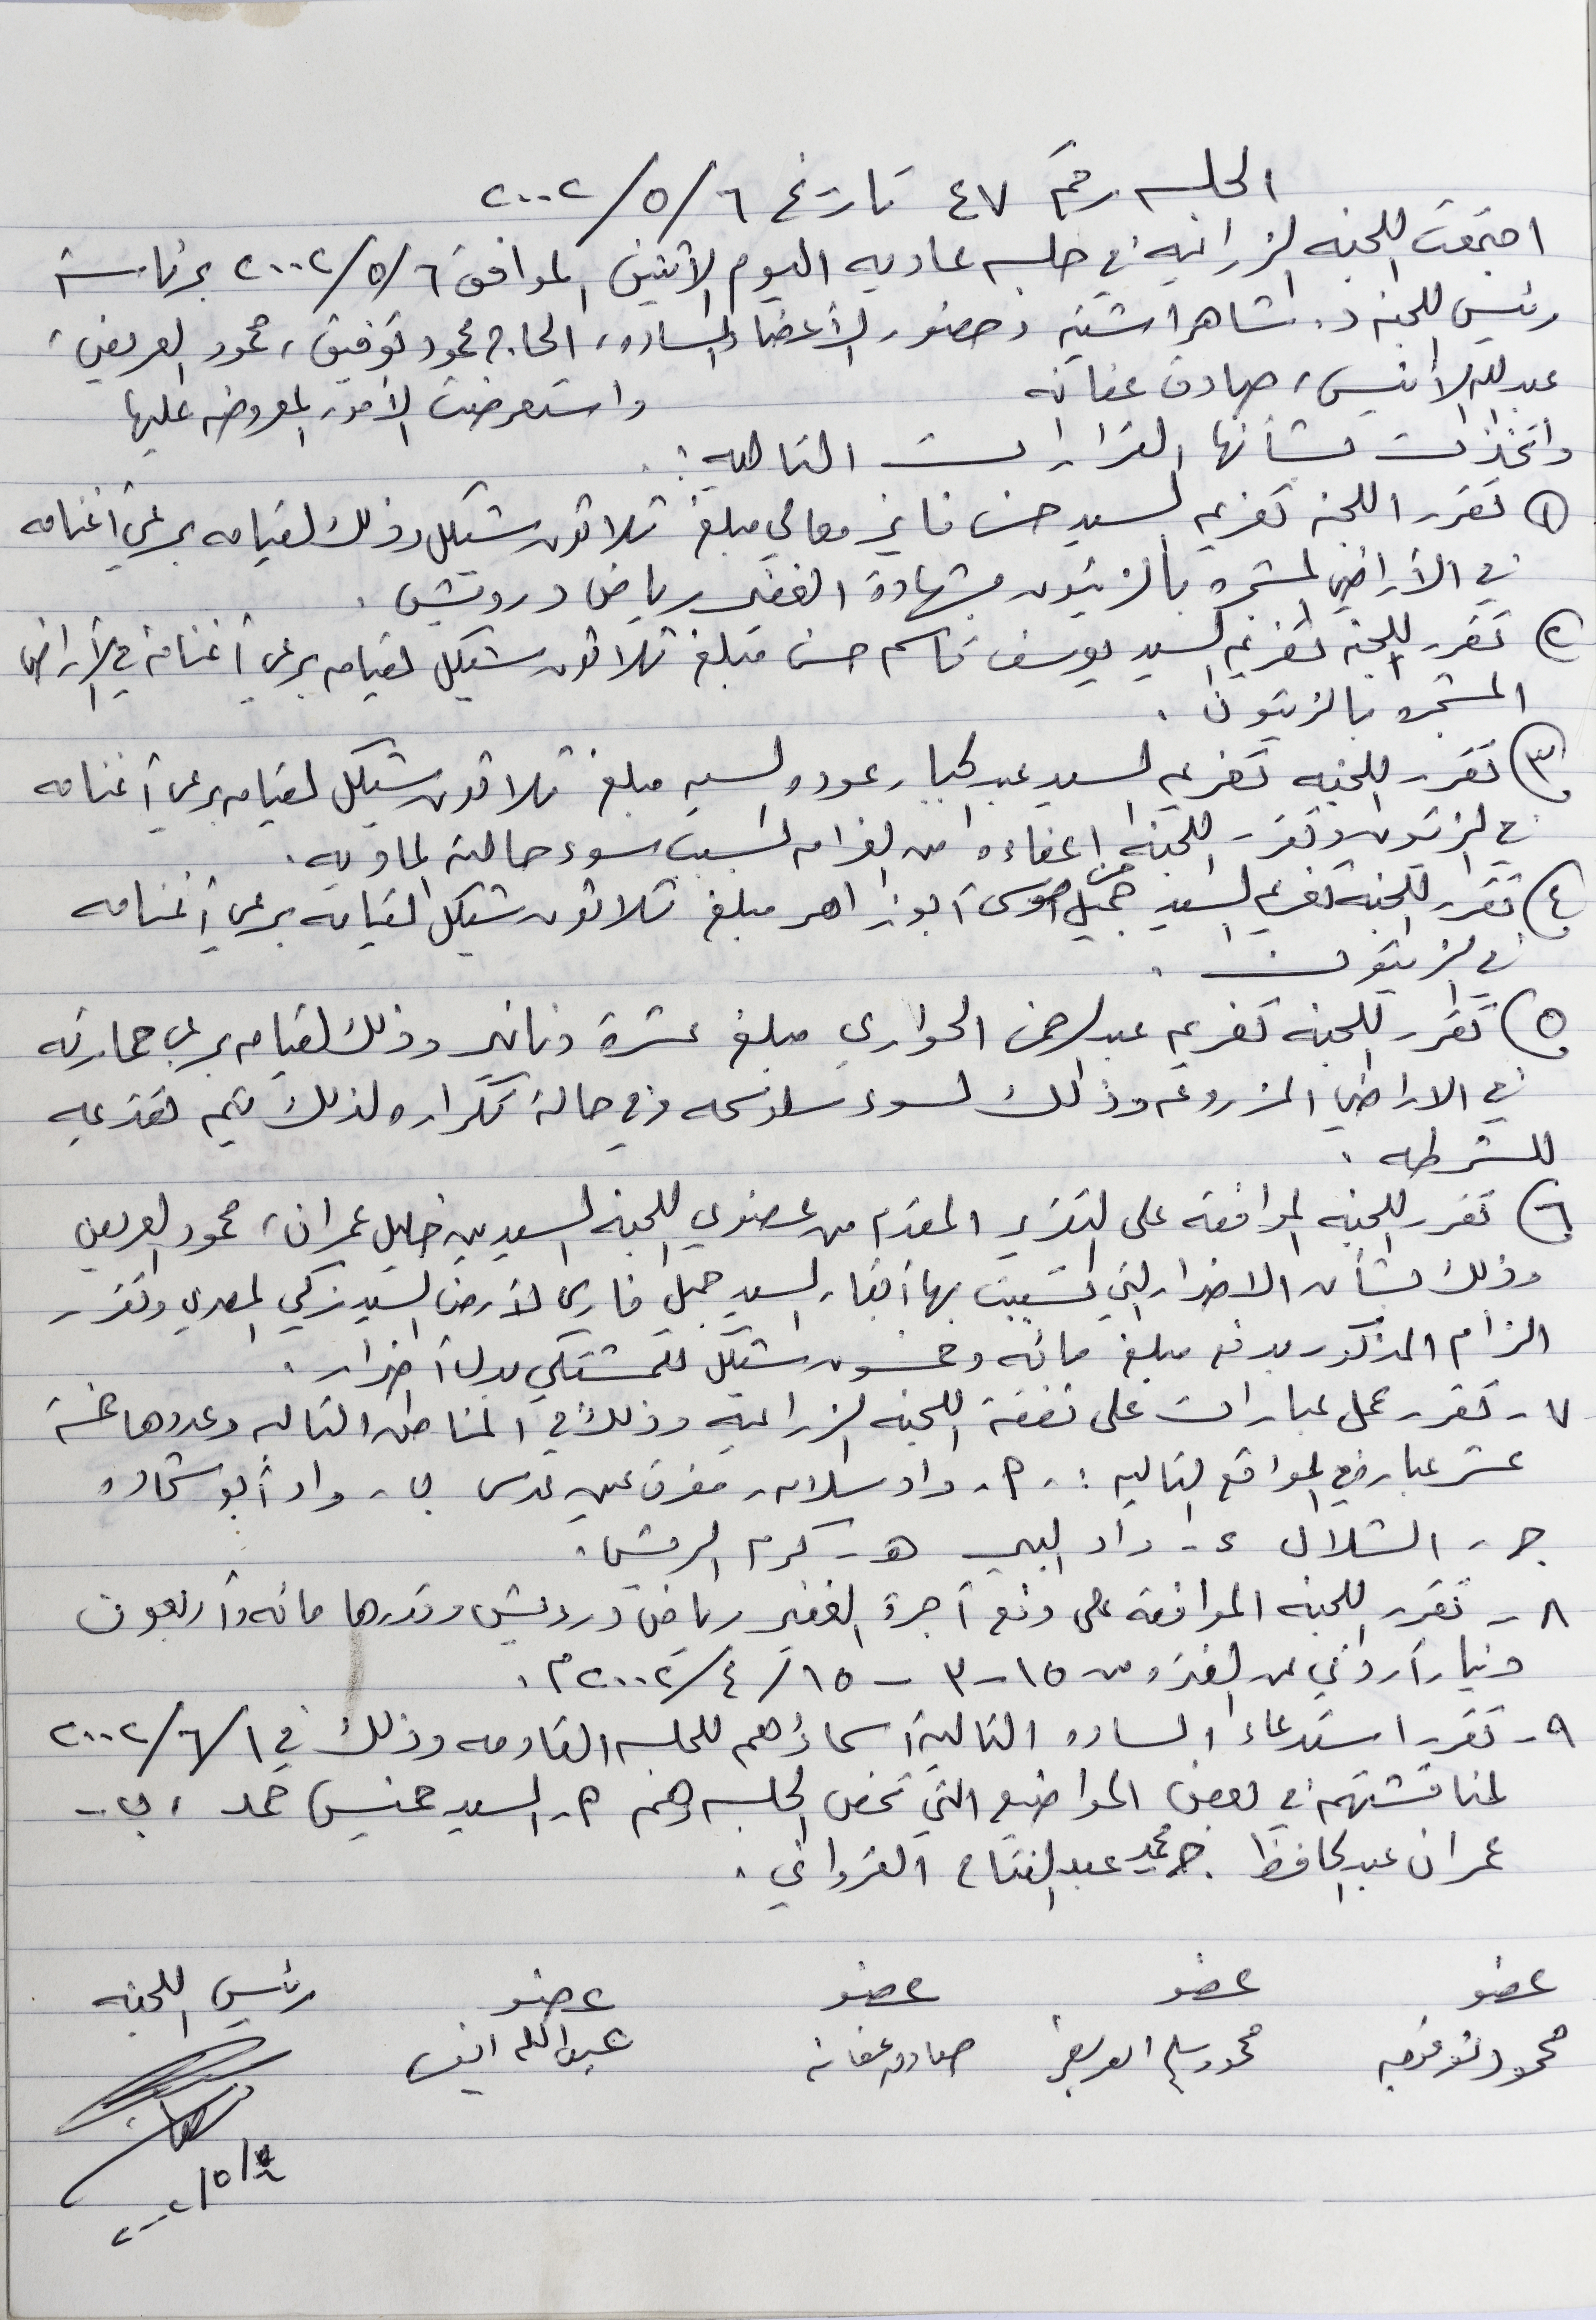 الجلسه رقم ٤٧ تاريخ ٦/٥/٢٠٠٢
اجتمعت اللجنه الزراعيه في جلسه عاديه اليوم الأثنين الموافق ٦/٥/٢٠٠٢ برئاسة
رئيس اللجنه د. شاهر اشتيه وحضور الأعضاء الساده، الحاج محمود توفيق، محمود العريض،
عبدالله الأنيس، صادق عفانه واستعرضت الأمور المعروضه عليها
واتخذت بشأنها القرارات التاليه:.
١) تقرر اللجنه تغريم السيد حسن فايز معالي مبلغ ثلاثون شيكل وذلك لقيامه برعي أغنامه
في الأراضي المشجره بالزيتون بشهادة الغفير رياض درويش.
٢) تقرر اللجنه تغريم السيد يوسف قاسم حسن مبلغ ثلاثون شيكل لقيامه برعي أغنامه في الأراضي
المشجره بالزيتون.
٣) تقرر اللجنه تغريم السيد عبد الجبار عوده السيد مبلغ ثلاثون شيكل لقيامه برعي أغنامه
في الزيتون وتقرر اللجنه اعفاءه من الغرامه لسبب سوء حالته الماديه.
٤) تقرر اللجنه تغريم السيد جميل موسى أبوزاهر مبلغ ثلاثون شيكل لقيامه برعي أغنامه
في الزيتون.
٥) تقرر اللجنه تغريم عبدالرحمن الحواري مبلغ عشرة دنانير وذلك لقيامه برعي حمارته
في الاراضي المزروعه وذلك لسوء سلوكه وفي حالة تكراره لذلك يتم تقديمه
للشرطه.
٦) تقرر اللجنه الموافقه على التقرير المقدم من عضوي اللجنه السيدين خليل عمران، محمود العريض
وذلك بشأن الاضرار التي تسببت بها أبقار السيد جميل فارس لأرض السيد زكي المصري وتقرر
الزام المذكور بدفع مبلغ مائه وخمسون شيكل للمشتكي بدل أضرار.
٧- تقرر عمل عبارات على نفقة اللجنه الزراعيه وذلك في المناطق التاليه وعددها خمسة
عشر عباره في المواقع التاليه :- أ- واد سلامه - مفرق عين قدس ب- واد أبو شحاده
ج- الشلال د- واد البير هـ- كرم الرمش.
٨- تقرر اللجنه الموافقه على دفع أجرة الغفير رياض درويش وقدرها مائه وأربعون
دينار أردني عن الفتره من ١٥-٣ - ١٥/٤/٢٠٠٢م.
٩- تقرر استدعاء الساده التاليه أسماؤهم للجلسه القادمه وذلك في ١/٦/٢٠٠٢
لمناقشتهم في بعض المواضيع التي تخص الجلسه وهم أ- السيد خميس حمد، ب-
عمران عبدالحافظ ج- محمد عبدالفتاح القرواني.
عضو عضو عضو عضو رئيس اللجنه
محمود توفيق محمود سليم العريض صادق عفانه عبدالله انيس